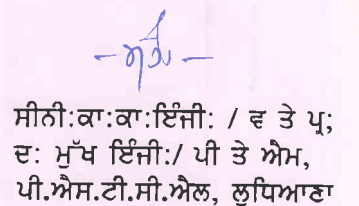 ਸੀਨੀ:ਕਾ:ਕਾ:ਇੰਜੀ: / ਵ ਤੇ ਪ੍ਰ;
ਦ: ਮੁੱਖ ਇੰਜੀ:/ ਪੀ ਤੇ ਐਮ,
ਪੀ.ਐਸ.ਟੀ.ਸੀ.ਐਲ, ਲੁਧਿਆਣਾ